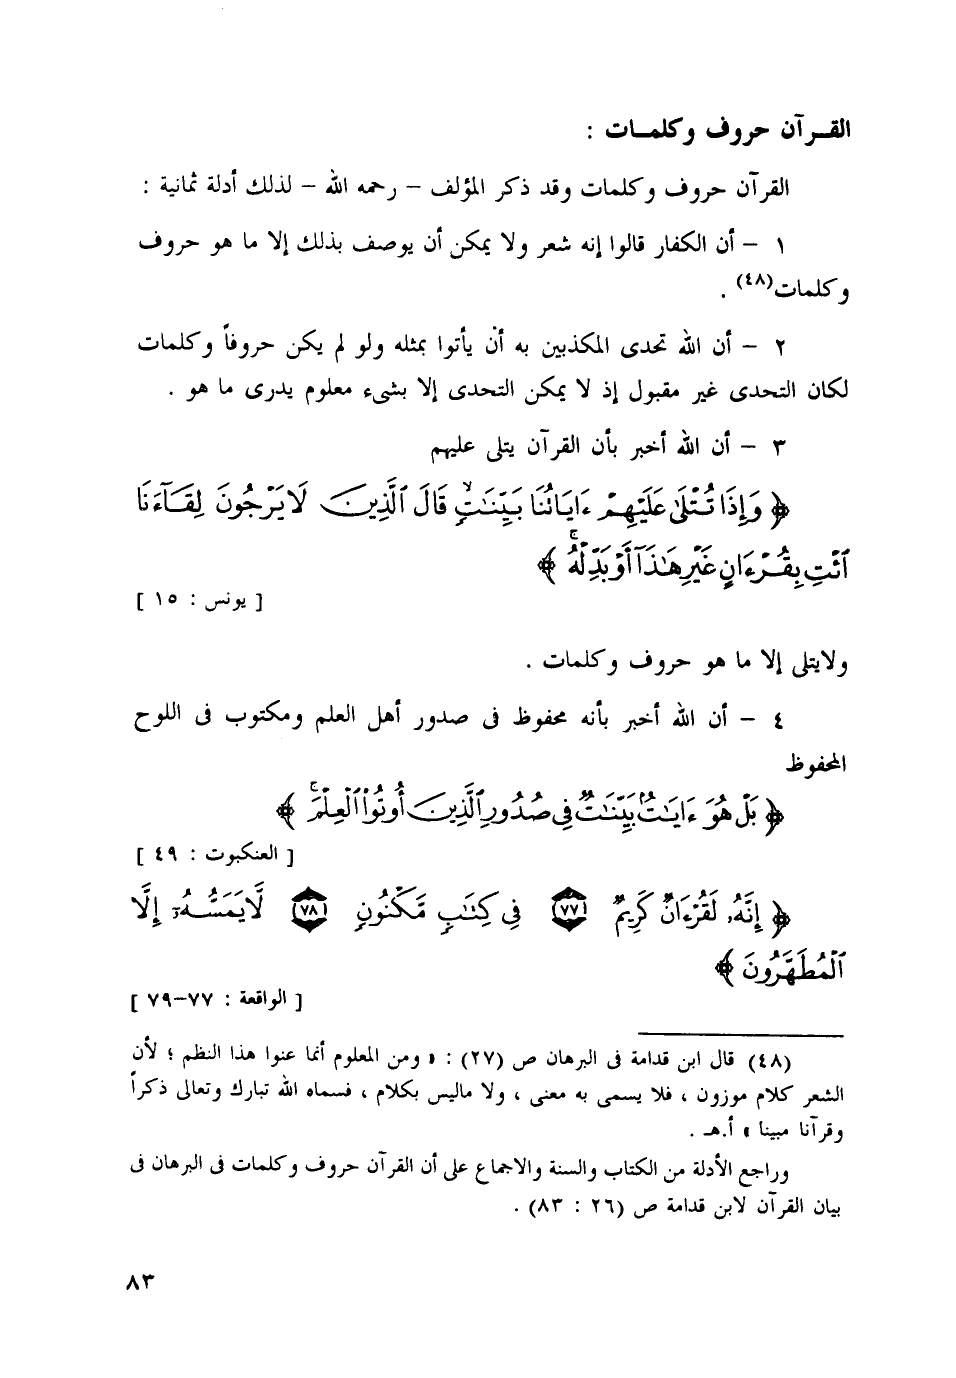 القـرآن حروف وكلمـات :
القرآن حروف وكلمات وقد ذكر المؤلف – رحمه الله – لذلك أدلة ثمانية :
١ – أن الكفار قالوا إنه شعر ولا يمكن أن يوصف بذلك إلا ما هو حروف
وكلمات(٤٨) .
٢ – أن الله تحدى المكذبين به أن يأتوا بمثله ولو لم يكن حروفاً وكلمات
لكان التحدى غير مقبول إذ لا يمكن التحدى إلا بشىء معلوم يدرى ما هو .
٣ – أن الله أخبر بأن القرآن يتلى عليهم
﴿ وَإِذَا تُتْلَىٰ عَلَيْهِمْ ءَايَاتُنَا بَيِّنَٰتٍۙ قَالَ ٱلَّذِينَ لَا يَرْجُونَ لِقَآءَنَا
ٱئْتِ بِقُرْءَانٍ غَيْرِ هَٰذَآ أَوْ بَدِّلْهُۚ ﴾
[ يونس : ١٥ ]
ولايتلى إلا ما هو حروف وكلمات .
٤ – أن الله أخبر بأنه محفوظ فى صدور أهل العلم ومكتوب فى اللوح
المحفوظ
﴿ بَلْ هُوَ ءَايَٰتٌۢ بَيِّنَٰتٌ فِي صُدُورِ ٱلَّذِينَ أُوتُوا۟ ٱلْعِلْمَۚ ﴾
[ العنكبوت : ٤٩ ]
﴿ إِنَّهُۥ لَقُرْءَانٌ كَرِيمٌ ﴿٧٧﴾ فِي كِتَٰبٍ مَّكْنُونٍ ﴿٧٨﴾ لَّا يَمَسُّهُۥٓ إِلَّا
ٱلْمُطَهَّرُونَ ﴾
[ الواقعة : ٧٧–٧٩ ]
(٤٨) قال ابن قدامة فى البرهان ص (٢٧) : « ومن المعلوم أنما عنوا هذا النظم ؛ لأن
الشعر كلام موزون ، فلا يسمى به معنى ، ولا ماليس بكلام ، فسماه الله تبارك وتعالى ذكراً
وقرآنا مبينا » أ.هـ .
وراجع الأدلة من الكتاب والسنة والاجماع على أن القرآن حروف وكلمات فى البرهان فى
بيان القرآن لابن قدامة ص (٢٦ : ٨٣) .
٨٣